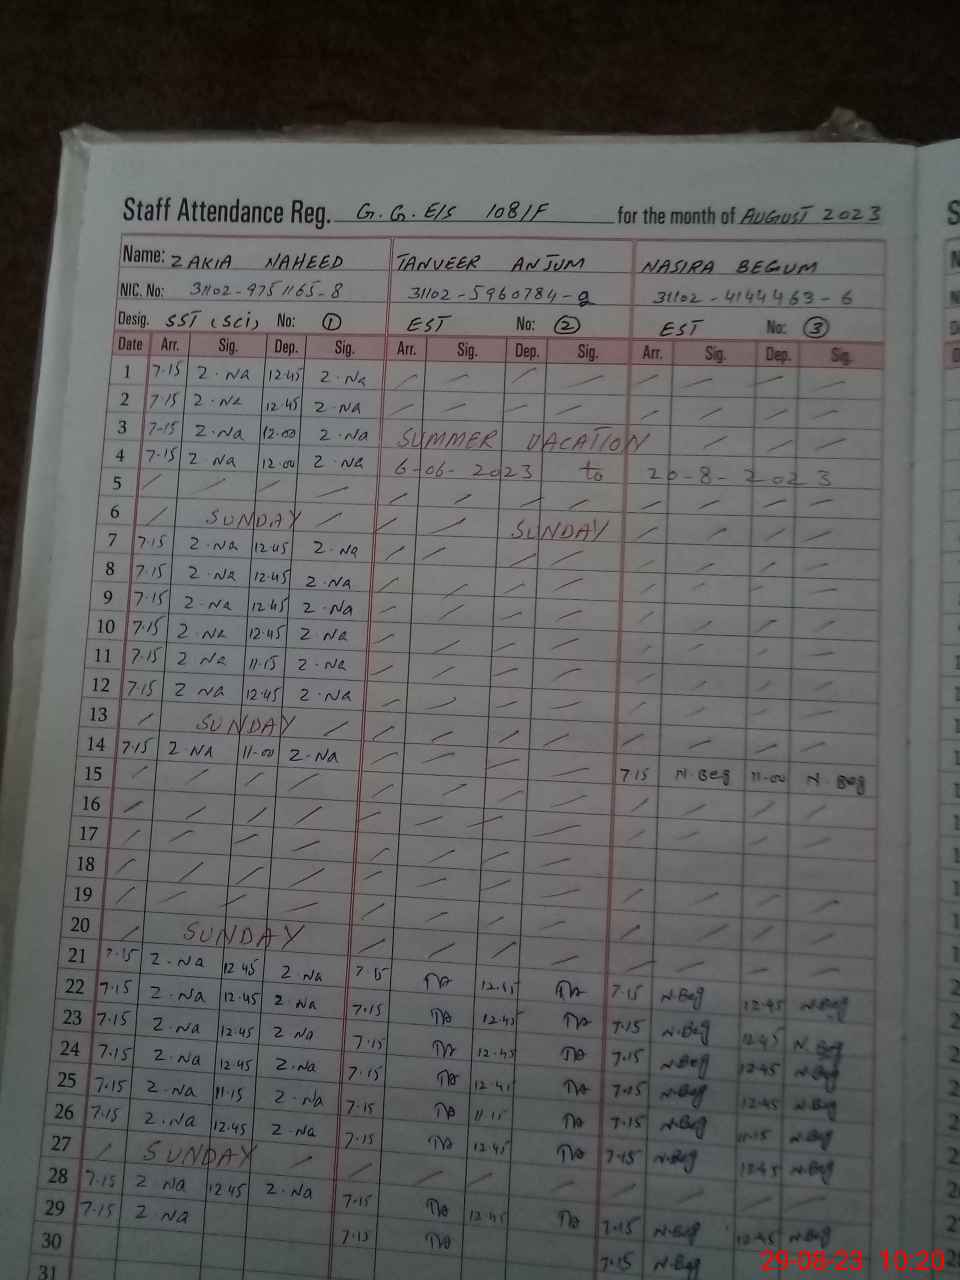 Staff Attendance Reg. G.G.E/S 108/F for the month of AUGUST 2023
Name: ZAKIA NAHEED TANVEER ANJUM NASIRA BEGUM
NIC. No: 31102-9751165-8 31102-5960784-2 31102-4144463-6
Desig. SST (Sci) No: 1 EST No: 2 EST No: 3
Date Arr. Sig. Dep. Sig. Arr. Sig. Dep. Sig. Arr. Sig. Dep. Sig.
1 7.15 Z.Na 12.45 Z.Na
2 7.15 Z.Na 12.45 Z.Na
3 7.15 Z.Na 12.00 Z.Na SUMMER VACATION
4 7.15 Z.Na 12.00 Z.Na 6-06-2023 to 20-8-2023
5
6 SUNDAY SUNDAY
7 7.15 Z.Na 12.45 Z.Na
8 7.15 Z.Na 12.45 Z.Na
9 7.15 Z.Na 12.45 Z.Na
10 7.15 Z.Na 12.45 Z.Na
11 7.15 Z.Na 11.15 Z.Na
12 7.15 Z.Na 12.45 Z.Na
13 SUNDAY
14 7.15 Z.Na 11.00 Z.Na 7.15 N.Beg 11.00 N.Beg
15
16
17
18
19
20 SUNDAY
21 7.15 Z.Na 12.45 Z.Na 7.15 TA 12.45 TA 7.15 N.Beg 12.45 N.Beg
22 7.15 Z.Na 12.45 Z.Na 7.15 TA 12.45 TA 7.15 N.Beg 12.45 N.Beg
23 7.15 Z.Na 12.45 Z.Na 7.15 TA 12.45 TA 7.15 N.Beg 12.45 N.Beg
24 7.15 Z.Na 12.45 Z.Na 7.15 TA 12.45 TA 7.15 N.Beg 12.45 N.Beg
25 7.15 Z.Na 11.15 Z.Na 7.15 TA 11.15 TA 7.15 N.Beg 11.15 N.Beg
26 7.15 Z.Na 12.45 Z.Na 7.15 TA 12.45 TA 7.15 N.Beg 12.45 N.Beg
27 SUNDAY
28 7.15 Z.Na 12.45 Z.Na 7.15 TA 12.45 TA 7.15 N.Beg 12.45 N.Beg
29 7.15 Z.Na 7.15 TA 7.15 N.Beg
30
31
29-08-23 10:20